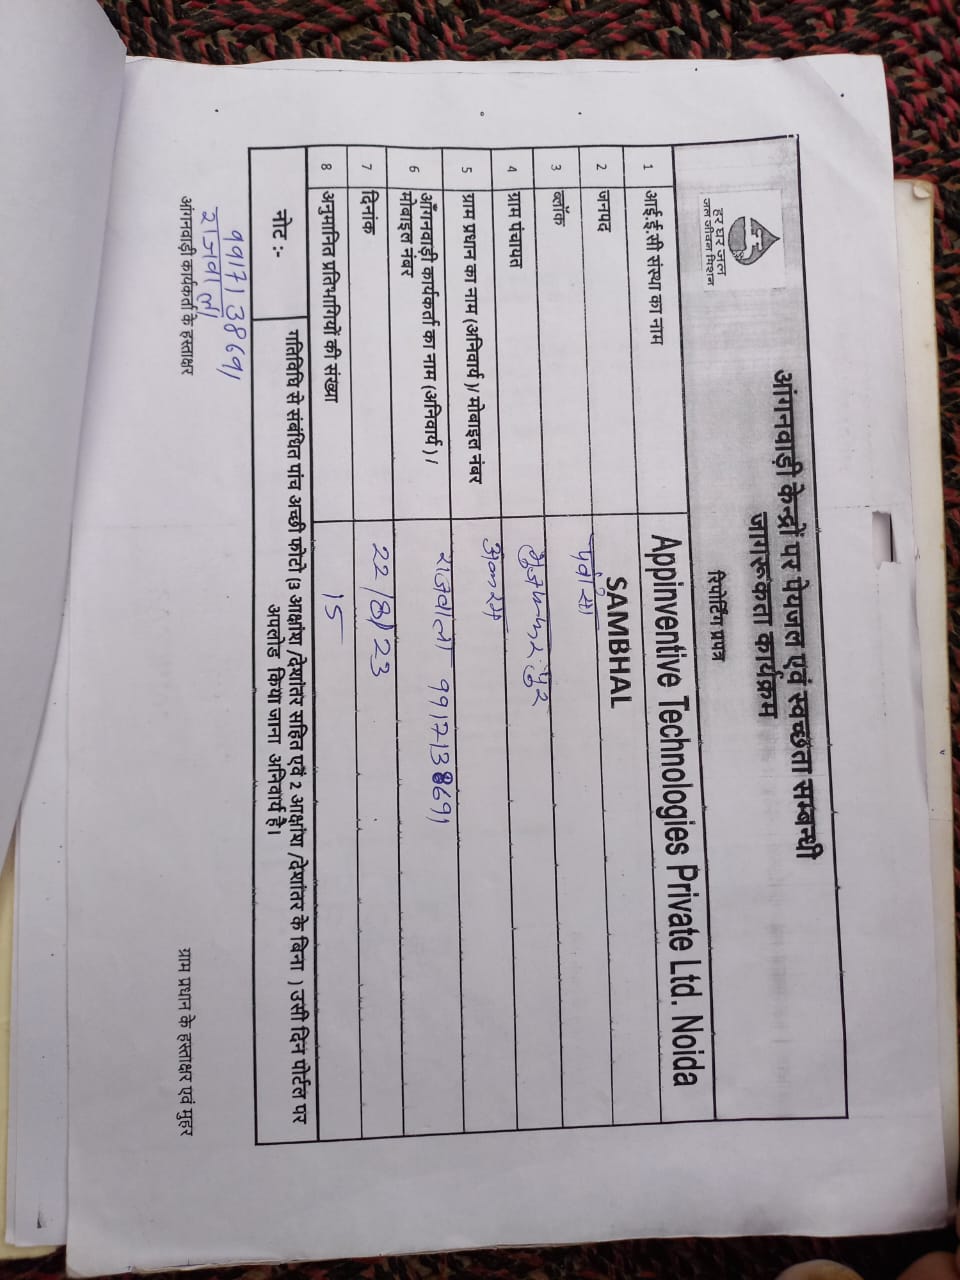 हर घर जल
जल जीवन मिशन
आंगनवाड़ी केन्द्रों पर पेयजल एवं स्वच्छता सम्बन्धी
जागरूकता कार्यक्रम
रिपोर्टिंग प्रपत्र
1 आई.ई.सी संस्था का नाम Appinventive Technologies Private Ltd. Noida
2 जनपद SAMBHAL
3 ब्लॉक पवांसा
4 ग्राम पंचायत मुजफ्फरपुर
5 ग्राम प्रधान का नाम (अनिवार्य)/ मोबाइल नंबर अकरम
6 आँगनवाड़ी कार्यकर्ता का नाम (अनिवार्य) /
मोबाइल नंबर राजवाला 9917138691
7 दिनांक 22/8/23
8 अनुमानित प्रतिभागियों की संख्या 15
नोट :- गतिविधि से संबंधित पांच अच्छी फोटो (3 आक्षांश /देशांतर सहित एवं 2 आक्षांश /देशांतर के बिना ) उसी दिन पोर्टल पर
अपलोड किया जाना अनिवार्य है।
9917138691
राजवाला
आंगनवाड़ी कार्यकर्ता के हस्ताक्षर
ग्राम प्रधान के हस्ताक्षर एवं मुहर